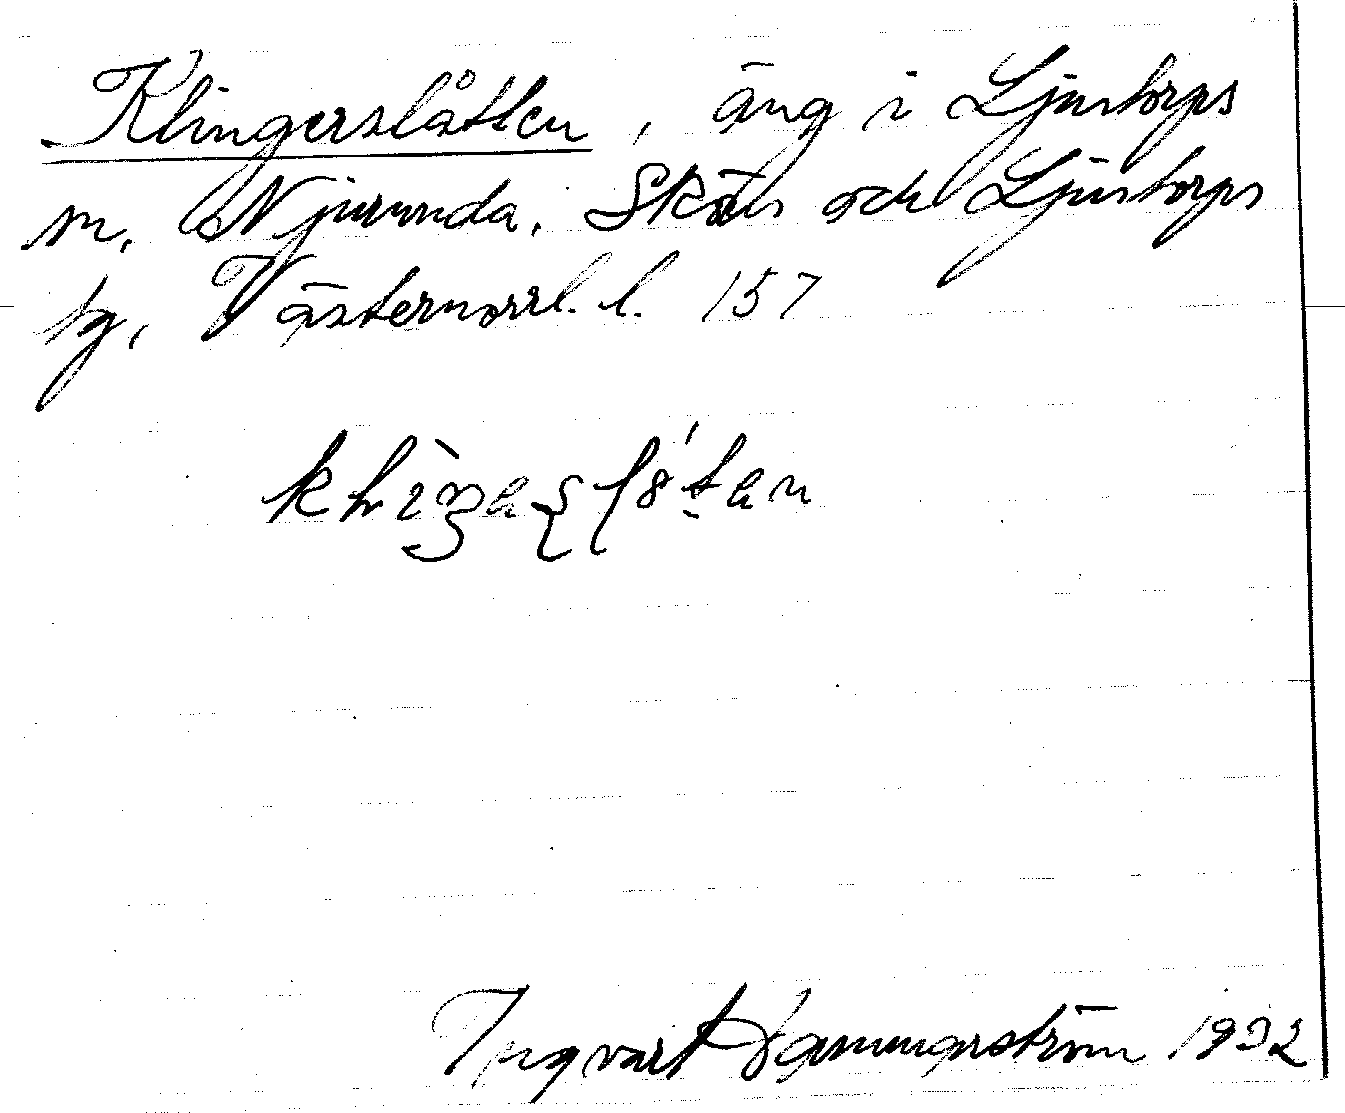 Klingerslåtten, äng i Ljustorps
sn, Njurunda, Sköns och Ljustorps
tg, Västernorrl. l. 157
Ingvart Hammarström 1932